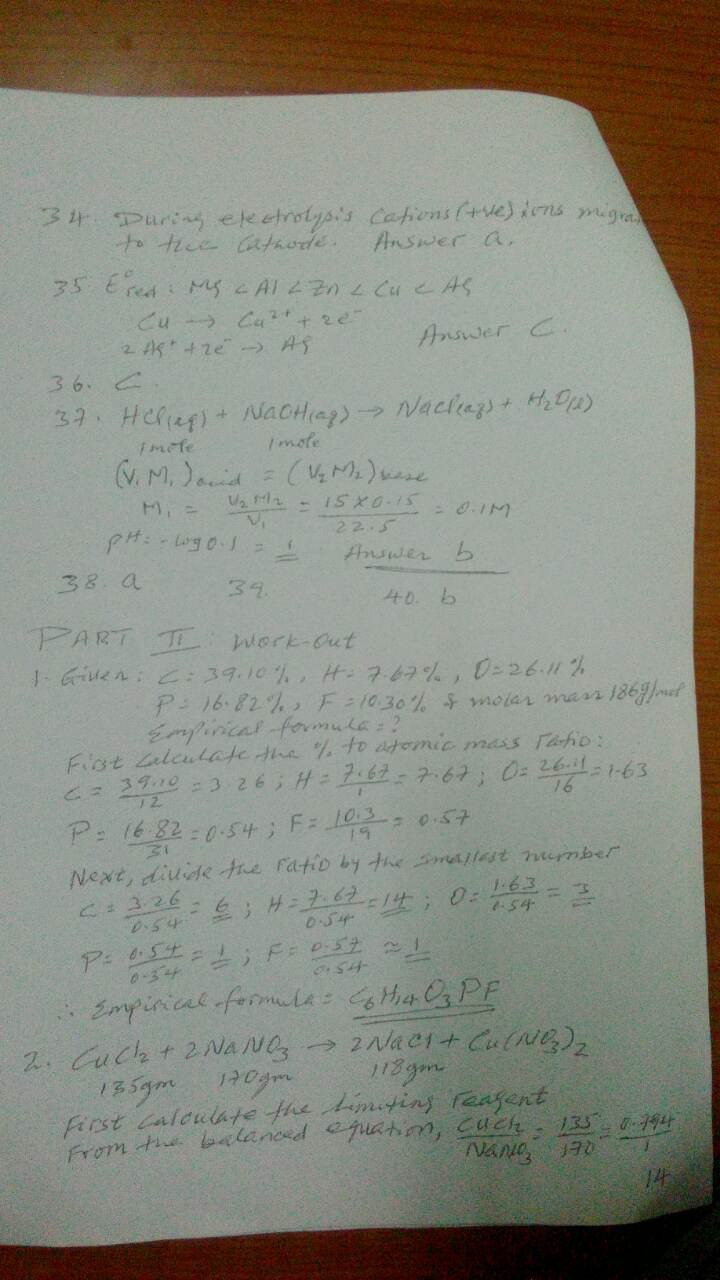 34. During electrolysis Cations (+ve) ions
to the Cathode. Answer a.
35 E°red : Mg < Al < Zn < Cu < Ag
Cu → Cu²⁺ + 2e⁻
2 Ag⁺ + 2e⁻ → Ag Answer C.
36. C.
37. HCl(aq) + NaOH(aq) → NaCl(aq) + H₂O(l)
1mole 1mole
(V₁M₁)acid = (V₂M₂)base
M₁ = V₂M₂/V₁ = 15 x 0.15/22.5 = 0.1M
pH = -log 0.1 = 1 Answer b
38. a 39. 40. b
PART II : Work-out
1. Given : C = 39.10%, H = 7.67%, O = 26.11%
P = 16.82%, F = 10.30% & molar mass 186g/mol
Empirical formula = ?
First calculate the % to atomic mass ratio :
C = 39.10/12 = 3.26 ; H = 7.67/1 = 7.67 ; O = 26.11/16 = 1.63
P = 16.82/31 = 0.54 ; F = 10.3/19 = 0.57
Next, divide the ratio by the smallest number
C = 3.26/0.54 = 6 ; H = 7.67/0.54 = 14 ; O = 1.63/0.54 = 3
P = 0.54/0.54 = 1 ; F = 0.57/0.54 ≈ 1
∴ Empirical formula = C₆H₁₄O₃PF
2. CuCl₂ + 2NaNO₃ → 2NaCl + Cu(NO₃)₂
135gm 170gm 118gm
First calculate the limiting reagent
From the balanced equation, CuCl₂/NaNO₃ = 135/170 = 0.794/1
14